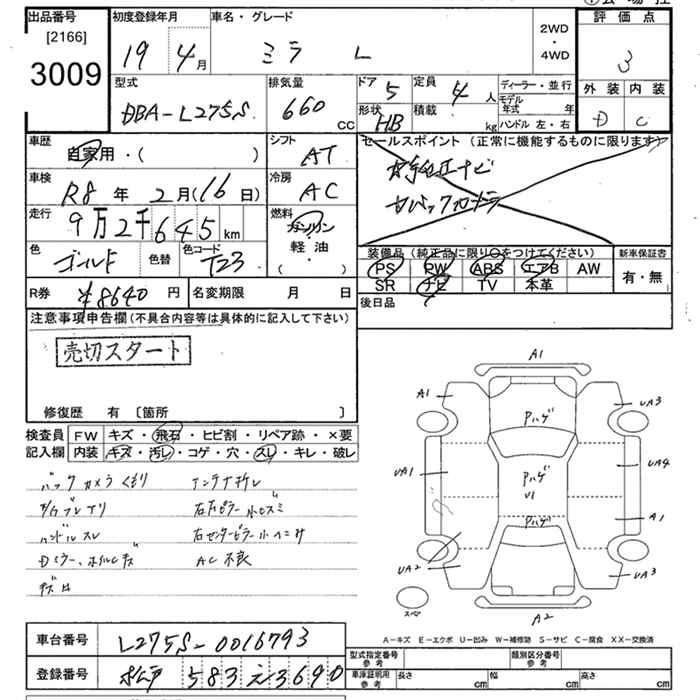 出品番号 初度登録年月 車名・グレード 評価点
[2166]
3009
19 4月 ミラ L 2WD・4WD 3
型式 排気量 ドア 5 定員 4人 ディーラー・並行 外装 内装
DBA-L275S 660 CC 形状 HB 積載 kg モデル年式 年 D C
ハンドル 左・右
車歴 自家用・( ) シフト AT セールスポイント(正常に機能するものに限ります)
車検 R8年 2月(16日) 冷房 AC
走行 9万2千645km 燃料 ガソリン 軽・油 ( ・ )
色 ゴールド 色替 色コード T23
装備品(純正品に限り○をつけてください) 新車保証書
PS PW ABS エアB AW 有・無
SR ナビ TV 本革
R券 ¥8640円 名変期限 月 日 後日品
注意事項申告欄(不具合内容等は具体的に記入して下さい)
売切スタート
修復歴 有 〔箇所 〕
検査員記入欄 FW キズ・飛石・ヒビ割・リペア跡・×要
内装 キズ・汚レ・コゲ・穴・スレ・キレ・破レ
バックカメラくもり
ハンドルスレ
AC不良
A1
A1 UA3
Pハゲ
UA1 Pハゲ UA4
U1
Pハゲ A1
UA2 UA3
スペア A2
A-キズ E-エクボ U-凹み W-補修跡 S-サビ C-腐食 XX-交換済
車台番号 L275S-0016793
登録番号 583 え 3690
型式指定番号 参考 類別区分番号 参考
車庫証明用 参考 長さ cm 幅 cm 高さ cm